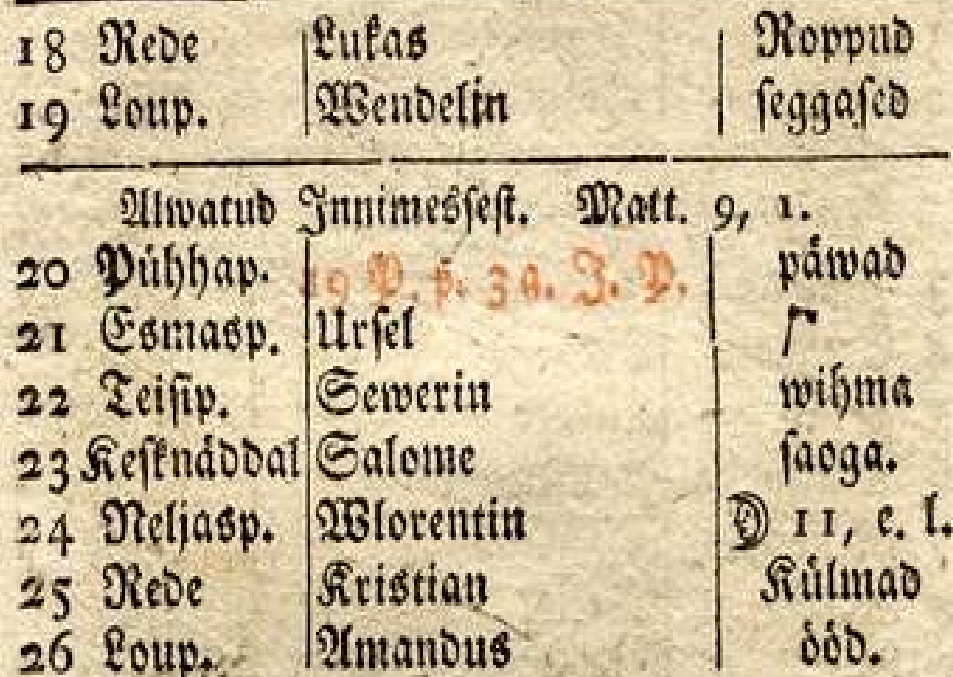 18 Rede Lukas Roppud
19 Loup. Wendelin seggased
Alwatud Innimessest. Matt. 9, 1.
20 Pühhap. 19 P. p. 3 a. J. P. päwad
21 Esmasp. Ursel
22 Teisip. Sewerin wihma
23 Kesknäddal Salome saoga.
24 Neljasp. Wlorentin 11, e. l.
25 Rede Kristian Külmad
26 Loup. Amandus ööd.